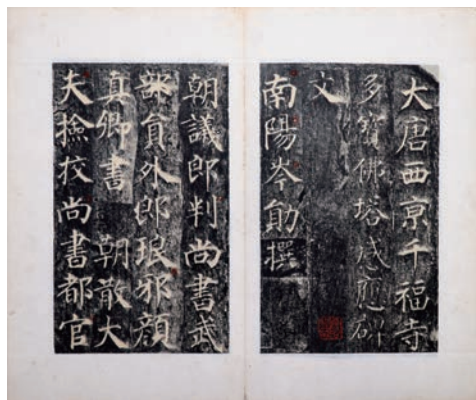 大唐西京千福寺
多寶佛塔感應碑
文
南陽岑勛撰
朝議郎判尚書武
部員外郎琅邪顏
真卿書 朝散大
夫撿挍尚書都官